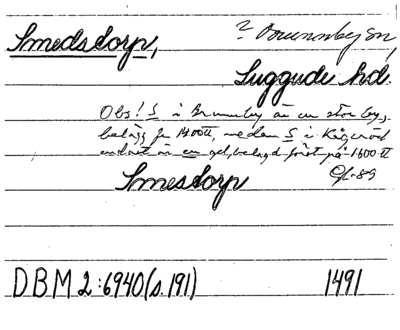 Smedstorp,
? Brunnby sn,
Luggude hd.
Obs! S i Brunnby är en stor by,
belagd fr 1400-t, medan S i Kågeröd
endast är en gd, belagd först på 1600-t
GL-89
Smestorp
DBM 2:6940 (s. 191) 1491